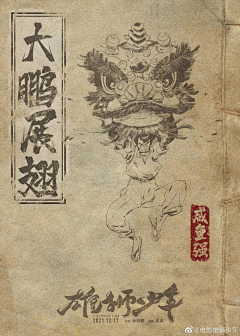 大鹏展翅
咸鱼强
雄狮少年
2021.12.17
@电影雄狮少年